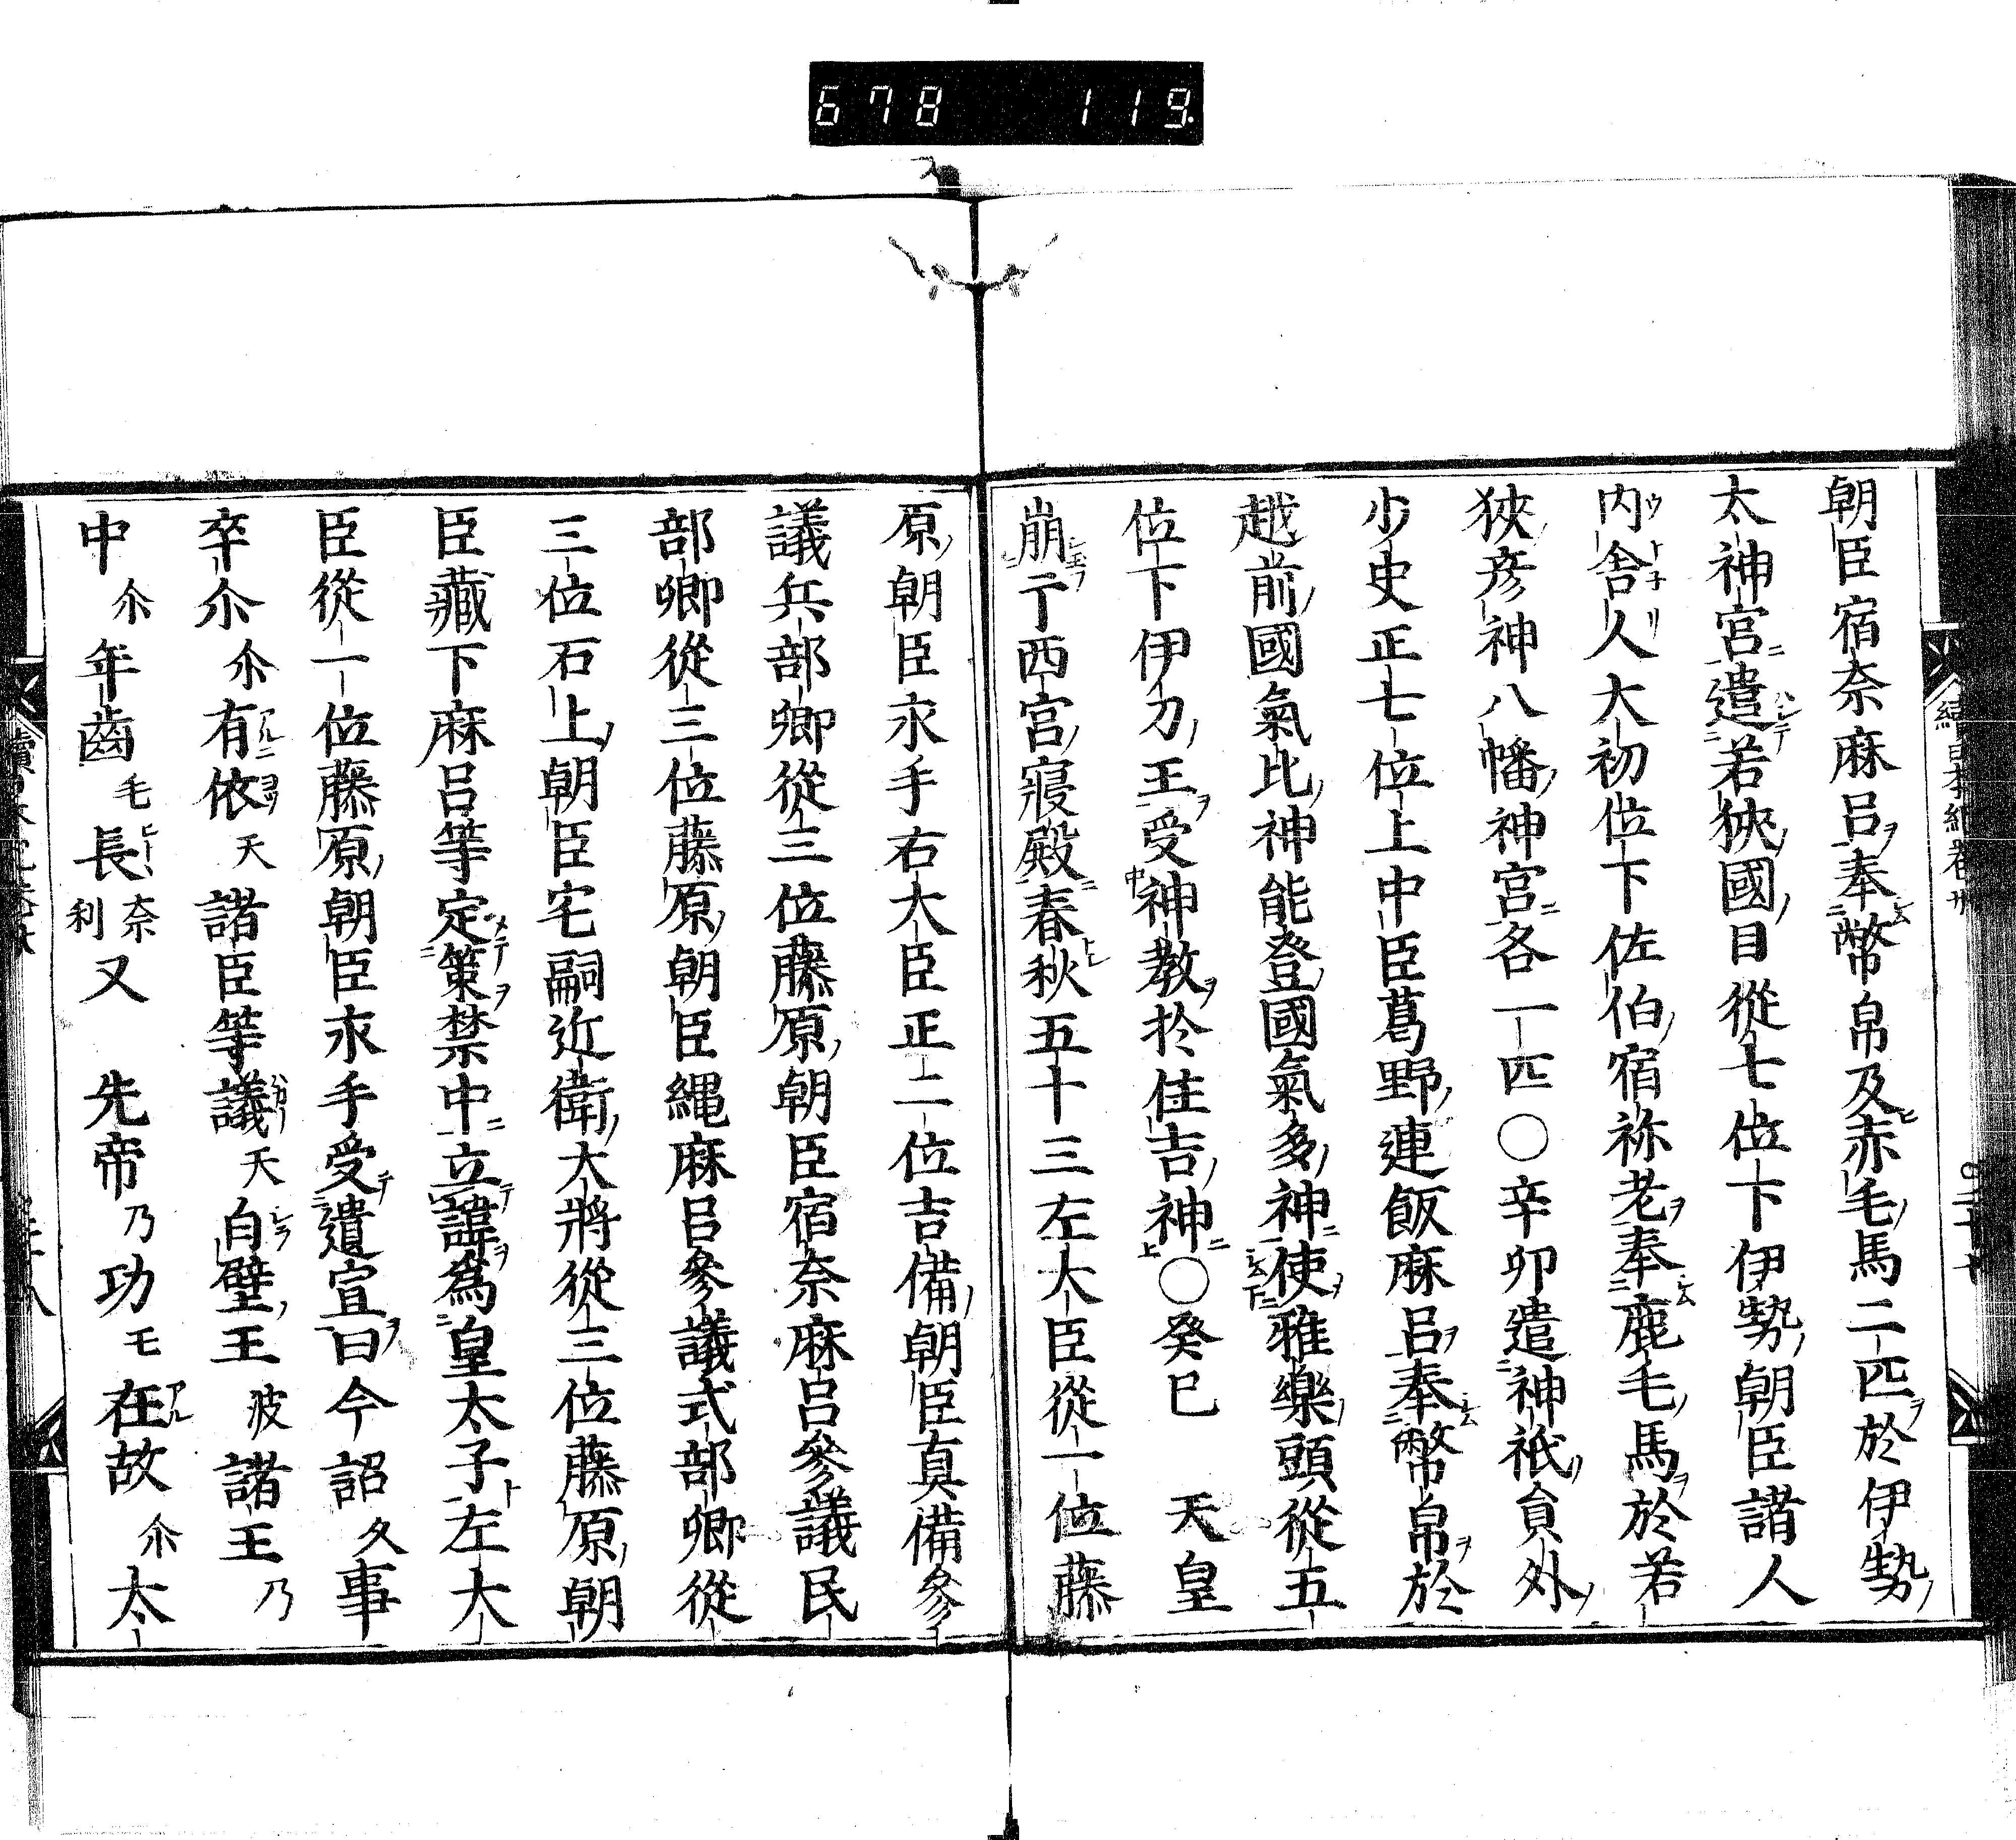 678 119
朝臣宿奈麻呂奉幣帛及赤毛馬二匹於伊勢
太神宮遣若狹國目從七位下伊勢朝臣諸人
内舎人大初位下佐伯宿祢老奉鹿毛馬於若
狹彦神八幡神宮各一匹○辛卯遣神祇貟外
少史正七位上中臣葛野連飯麻呂奉幣帛於
越前國氣比神能登國氣多神使雅樂頭從五
位下伊刀王受神教於住吉神○癸巳 天皇
崩于西宮寢殿春秋五十三左大臣從一位藤
原朝臣永手右大臣正二位吉備朝臣真備參
議兵部卿從三位藤原朝臣宿奈麻呂參議民
部卿從三位藤原朝臣縄麻呂參議式部卿從
三位石上朝臣宅嗣近衛大將從三位藤原朝
臣藏下麻呂等定策禁中立諱爲皇太子左大
臣從一位藤原朝臣永手受遺宣曰今詔久事
卒尓尓有依天諸臣等議天白壁王波諸王乃
中尓年齒毛長奈利又 先帝乃功毛在故尓太